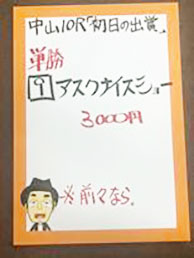 中山10R「初日の出賞」
単勝
9 アスクナイスショー
3000円
※前々なら。